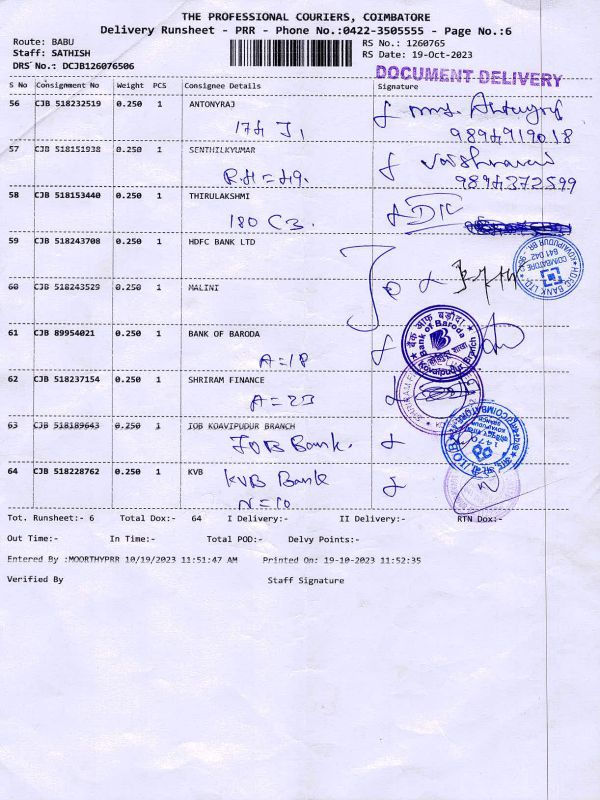 THE PROFESSIONAL COURIERS, COIMBATORE
Delivery Runsheet - PRR - Phone No.:0422-3505555 - Page No.:6
Route: BABU
Staff: SATHISH
DRS No.: DCJB126076506
RS No.: 1260765
RS Date: 19-Oct-2023
DOCUMENT DELIVERY
S No Consignment No Weight PCS Consignee Details Signature
56 CJB 518232519 0.250 1 ANTONYRAJ
9894919018
57 CJB 518151938 0.250 1 SENTHILKYUMAR
9894372599
58 CJB 518153440 0.250 1 THIRULAKSHMI
180 C3.
59 CJB 518243708 0.250 1 HDFC BANK LTD
HDFC BANK LTD.
COIMBATORE
641 042
60 CJB 518243529 0.250 1 MALINI
61 CJB 89954021 0.250 1 BANK OF BARODA
A=18
बैंक ऑफ़ बड़ौदा
Bank of Baroda
Kovaipudur Branch
62 CJB 518237154 0.250 1 SHRIRAM FINANCE
A=23
63 CJB 518189643 0.250 1 IOB KOAVIPUDUR BRANCH
IOB Bank.
64 CJB 518228762 0.250 1 KVB
KVB Bank
N=10
Tot. Runsheet:- 6 Total Dox:- 64 I Delivery:- II Delivery:- RTN Dox:-
Out Time:- In Time:- Total POD:- Delvy Points:-
Entered By :MOORTHYPRR 10/19/2023 11:51:47 AM Printed On: 19-10-2023 11:52:35
Verified By Staff Signature